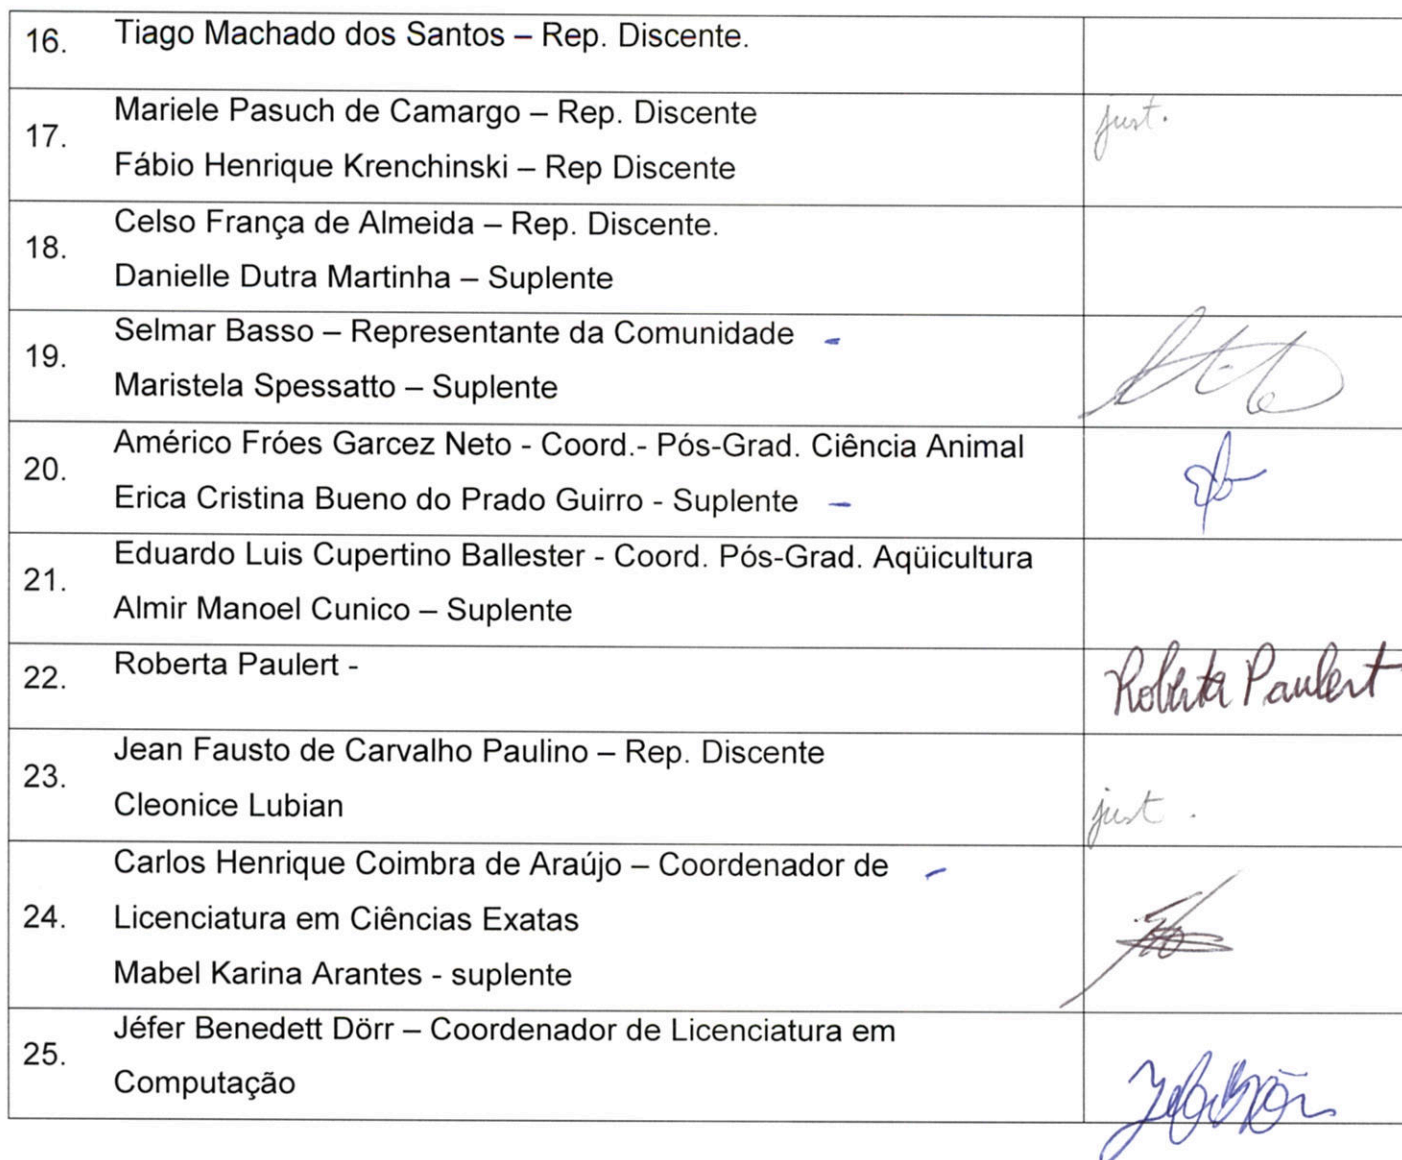 16. Tiago Machado dos Santos – Rep. Discente.
17. Mariele Pasuch de Camargo – Rep. Discente just.
Fábio Henrique Krenchinski – Rep Discente
18. Celso França de Almeida – Rep. Discente.
Danielle Dutra Martinha – Suplente
19. Selmar Basso – Representante da Comunidade -
Maristela Spessatto – Suplente
20. Américo Fróes Garcez Neto - Coord.- Pós-Grad. Ciência Animal
Erica Cristina Bueno do Prado Guirro - Suplente -
21. Eduardo Luis Cupertino Ballester - Coord. Pós-Grad. Aqüicultura
Almir Manoel Cunico – Suplente
22. Roberta Paulert - Roberta Paulert
23. Jean Fausto de Carvalho Paulino – Rep. Discente
Cleonice Lubian just.
24. Carlos Henrique Coimbra de Araújo – Coordenador de -
Licenciatura em Ciências Exatas
Mabel Karina Arantes - suplente
25. Jéfer Benedett Dörr – Coordenador de Licenciatura em
Computação